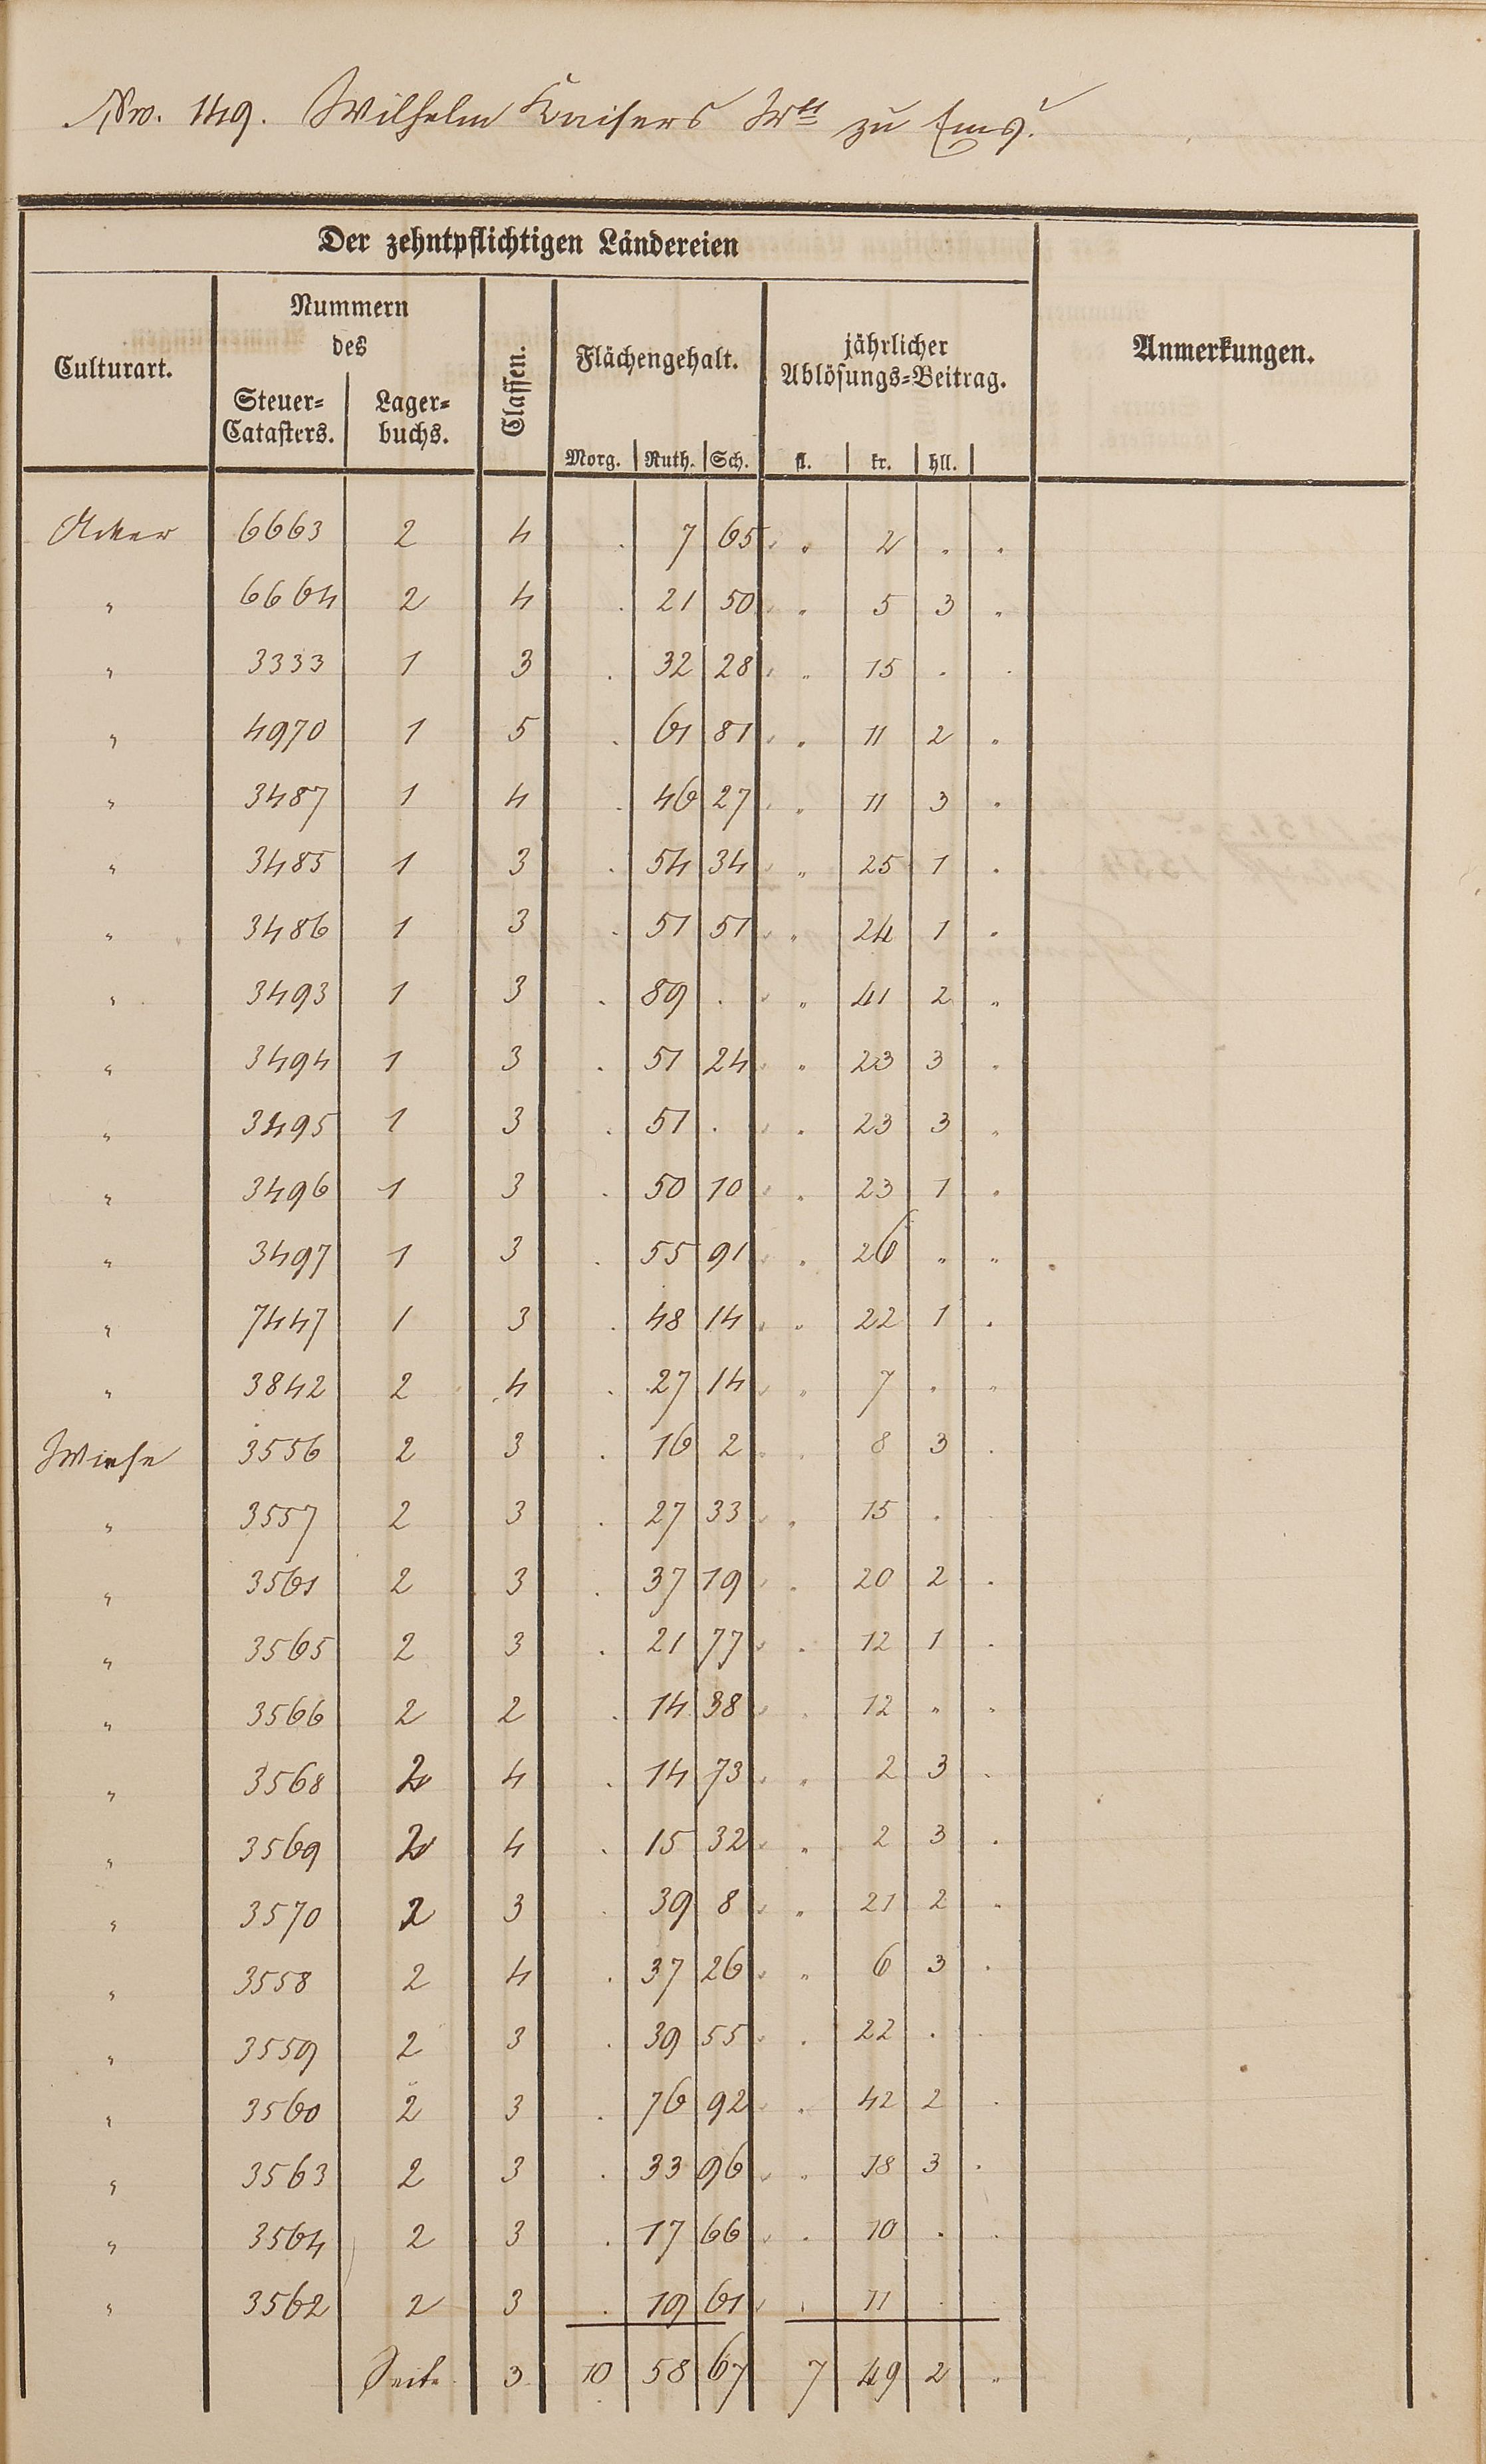 Nro. 149. Wilhelm Kaisers Wtt zu Ems.
Der zehntpflichtigen Ländereien
Culturart.
Nummern
des
Steuer=
Catasters.
Lager=
buchs.
Classen.
Flächengehalt.
Morg. Ruth. Sch.
jährlicher
Ablösungs=Beitrag.
fl. kr. hll.
Anmerkungen.
Acker 6663 2 4 . 7 65 " 2 . .
" 6664 2 4 . 21 50 " 5 3 "
" 3333 1 3 . 32 28 " 15 . .
" 4970 1 5 . 61 81 " 11 2 "
" 3487 1 4 . 46 27 " 11 3 "
" 3485 1 3 . 54 34 " 25 1 .
" 3486 1 3 . 51 51 " 24 1 .
" 3493 1 3 . 89 . " 41 2 "
" 3494 1 3 . 51 24 " 23 3 .
" 3495 1 3 . 51 . " 23 3 "
" 3496 1 3 . 50 10 " 23 1 .
" 3497 1 3 . 55 91 " 26 " "
" 7447 1 3 . 48 14 " 22 1 .
" 3842 2 4 . 27 14 " 7 . "
Wiese 3556 2 3 . 16 2 . 8 3 .
" 3557 2 3 . 27 33 " 15 . .
" 3561 2 3 . 37 19 . 20 2 .
" 3565 2 3 . 21 77 . 12 1 .
" 3566 2 2 . 14 38 . 12 " .
" 3568 2 4 . 14 73 " 2 3 .
" 3569 2 4 . 15 32 " 2 3 .
" 3570 2 3 . 39 8 " 21 2 .
" 3558 2 4 . 37 26 " 6 3 .
" 3559 2 3 . 39 55 . 22 . .
" 3560 2 3 . 76 92 . 42 2 .
" 3563 2 3 . 33 96 " 18 3 .
" 3564 2 3 . 17 66 . 10 . .
" 3562 2 3 . 19 61 . 11 . .
Seite 3 10 58 67 7 49 2 "